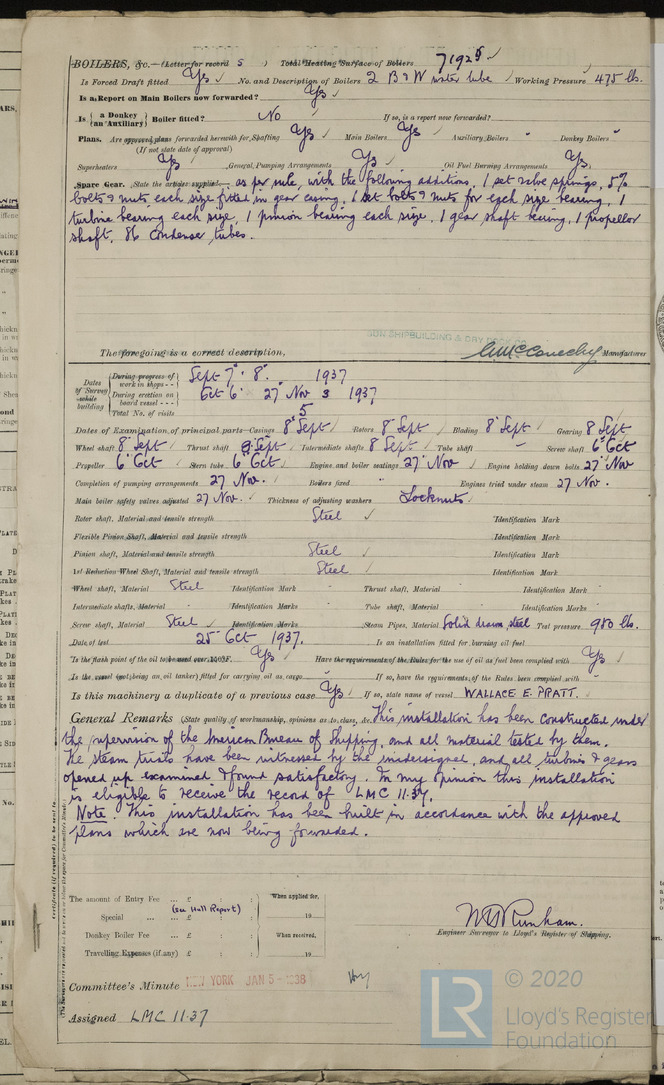 BOILERS, &c.—(Letter for record S ) Total Heating Surface of Boilers 7192
Is Forced Draft fitted Yes No. and Description of Boilers 2 B & W water tube Working Pressure 475 lbs.
Is a Report on Main Boilers now forwarded? Yes
Is { a Donkey (an Auxiliary) } Boiler fitted? No If so, is a report now forwarded?
Plans. Are approved plans forwarded herewith for Shafting Yes Main Boilers Yes Auxiliary Boilers " Donkey Boilers "
(If not state date of approval)
Superheaters Yes General Pumping Arrangements Yes Oil Fuel Burning Arrangements Yes
Spare Gear. State the articles supplied as per rule, with the following additions, 1 set valve springs, 5%
bolts & nuts, each size fitted in gear casing, 1 set bolts & nuts for each size bearing, 1
turbine bearing each size, 1 pinion bearing each size, 1 gear shaft bearing, 1 propellor
shaft, 86 condenser tubes.
SUN SHIPBUILDING & DRY DOCK CO.
The foregoing is a correct description, Manufacturer
Dates of Survey while building
During progress of work in shops - - Sept 7. 8. 1937
During erection on board vessel - - - Oct 6 27 Nov 3 1937
Total No. of visits 5
Dates of Examination of principal parts—Casings 8 Sept Rotors 8 Sept Blading 8 Sept Gearing 8 Sept
Wheel shaft 8 Sept Thrust shaft 8 Sept Intermediate shafts 8 Sept Tube shaft - Screw shaft 6 Oct
Propeller 6 Oct Stern tube 6 Oct Engine and boiler seatings 27 Nov Engine holding down bolts 27 Nov
Completion of pumping arrangements 27 Nov. Boilers fixed Engines tried under steam 27 Nov.
Main boiler safety valves adjusted 27 Nov. Thickness of adjusting washers Locknuts
Rotor shaft, Material and tensile strength Steel Identification Mark
Flexible Pinion Shaft, Material and tensile strength Identification Mark
Pinion shaft, Material and tensile strength Steel Identification Mark
1st Reduction Wheel Shaft, Material and tensile strength Steel Identification Mark
Wheel shaft, Material Steel Identification Mark Thrust shaft, Material Identification Mark
Intermediate shafts, Material Identification Marks Tube shaft, Material Identification Marks
Screw shaft, Material Steel Identification Marks Steam Pipes, Material Solid drawn steel Test pressure 950 lbs.
Date of test 25 Oct 1937. Is an installation fitted for burning oil fuel
Is the flash point of the oil to be used over 150°F. Yes Have the requirements of the Rules for the use of oil as fuel been complied with Yes
Is the vessel (not being an oil tanker) fitted for carrying oil as cargo If so, have the requirements of the Rules been complied with
Is this machinery a duplicate of a previous case Yes If so, state name of vessel WALLACE E. PRATT.
General Remarks (State quality of workmanship, opinions as to class, &c. This installation has been constructed under
the supervision of the American Bureau of Shipping, and all material tested by them.
The steam trials have been witnessed by the undersigned, and all turbines & gears
opened up examined & found satisfactory. In my opinion this installation
is eligible to receive the record of LMC 11.37.
Note. This installation has been built in accordance with the approved
plans which are now being forwarded.
Certificate (if required) to be sent to
The amount of Entry Fee ... £ : : When applied for,
Special ... ... £ (see Hull Report) : 19
Donkey Boiler Fee ... £ : : When received,
Travelling Expenses (if any) £ : : 19
Engineer Surveyor to Lloyd's Register of Shipping.
Committee's Minute NEW YORK JAN 5 - 1938
Assigned LMC 11.37
LR
© 2020
Lloyd's Register
Foundation